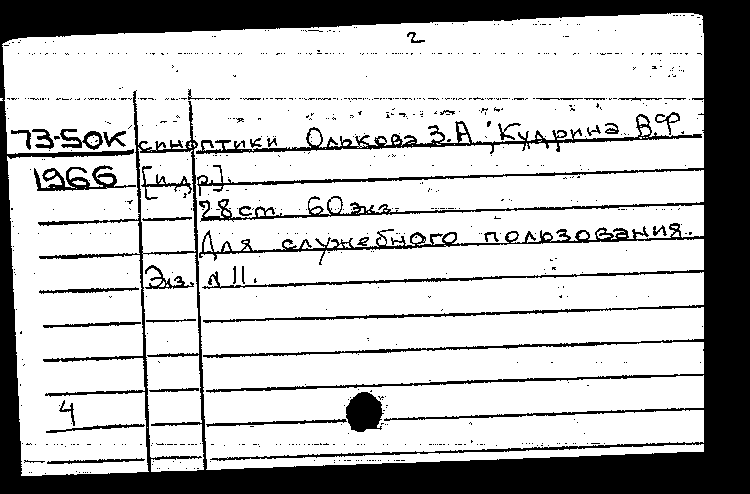 2
73-50К синоптики Олькова З.А., Кудрина В.Ф.
1966 [и др.].
28 ст. 60 экз.
Для служебного пользования.
Экз. N 11.
4